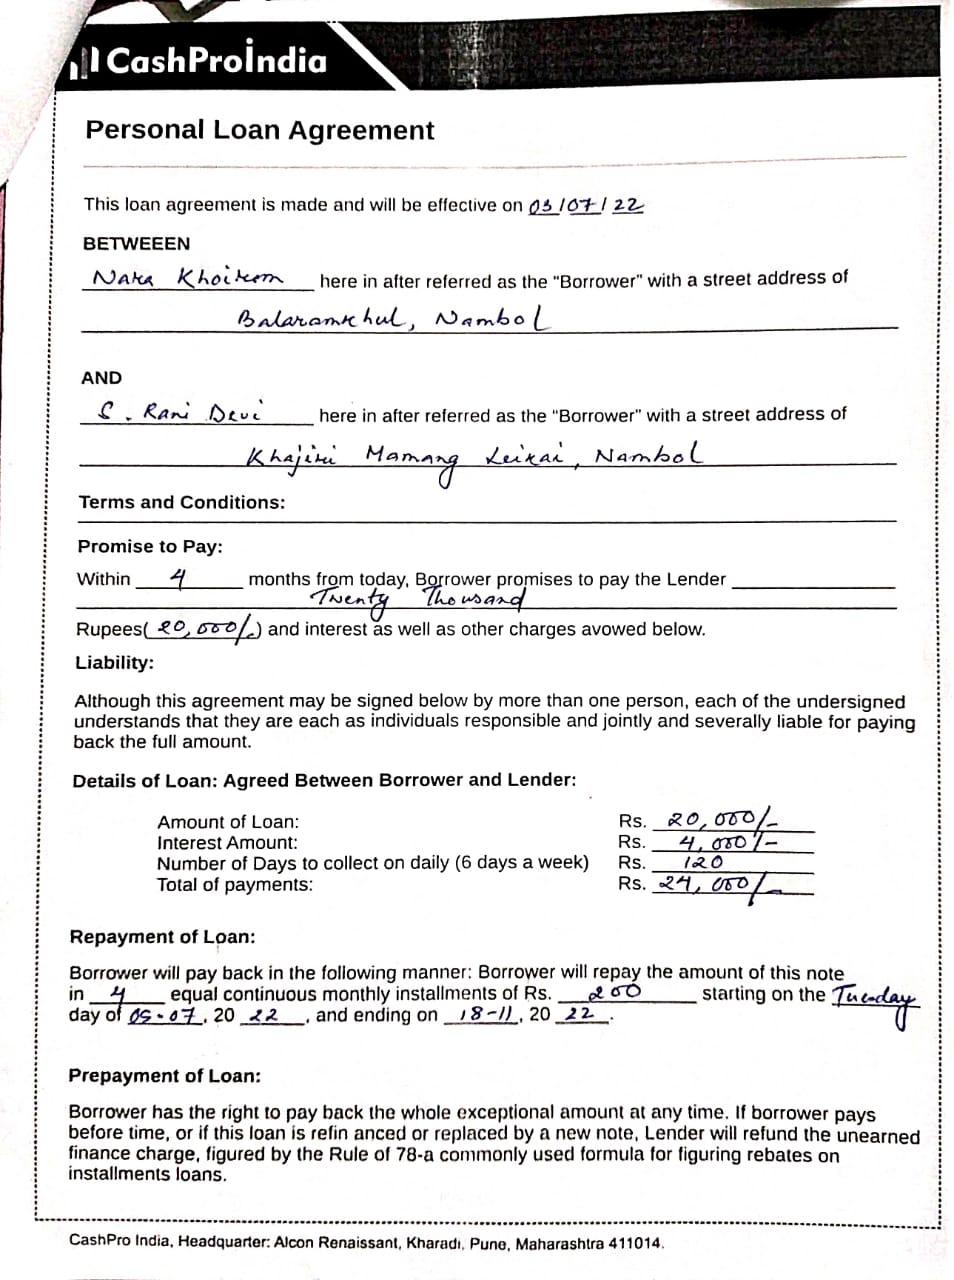 CashProindia
Personal Loan Agreement
This loan agreement is made and will be effective on 03/07/22
BETWEEEN
Nara Khoirom here in after referred as the "Borrower" with a street address of
Balaramkhul, Nambol
AND
S. Rani Devi here in after referred as the "Borrower" with a street address of
Khajiri Mamang Leikai, Nambol
Terms and Conditions:
Promise to Pay:
Within 4 months from today, Borrower promises to pay the Lender
Twenty Thousand
Rupees( 20,000/-) and interest as well as other charges avowed below.
Liability:
Although this agreement may be signed below by more than one person, each of the undersigned
understands that they are each as individuals responsible and jointly and severally liable for paying
back the full amount.
Details of Loan: Agreed Between Borrower and Lender:
Amount of Loan: Rs. 20,000/-
Interest Amount: Rs. 4,000/-
Number of Days to collect on daily (6 days a week) Rs. 120
Total of payments: Rs. 24,000/-
Repayment of Loan:
Borrower will pay back in the following manner: Borrower will repay the amount of this note
in 4 equal continuous monthly installments of Rs. 200 starting on the Tuesday
day of 05-07, 20 22, and ending on 18-11, 20 22.
Prepayment of Loan:
Borrower has the right to pay back the whole exceptional amount at any time. If borrower pays
before time, or if this loan is refin anced or replaced by a new note, Lender will refund the unearned
finance charge, figured by the Rule of 78-a commonly used formula for figuring rebates on
installments loans.
CashPro India, Headquarter: Alcon Renaissant, Kharadi, Pune, Maharashtra 411014.